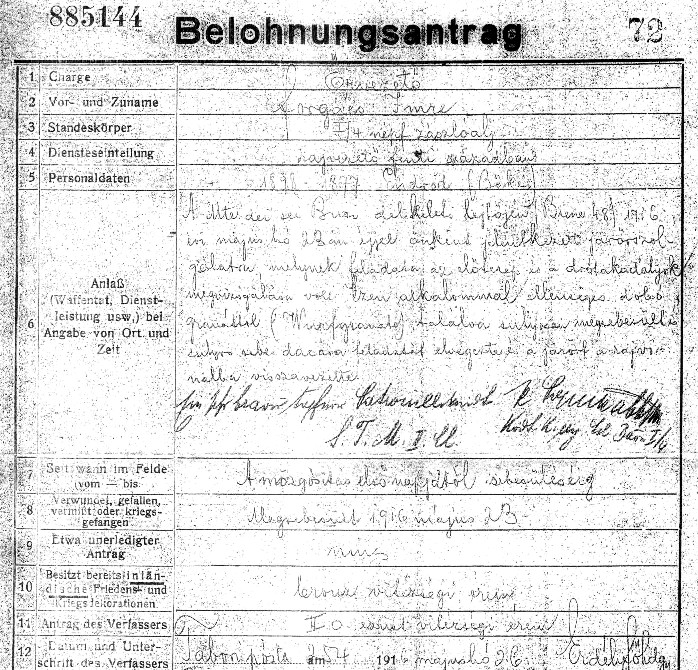 885144
Belohnungsantrag
72
1 Charge
Őrvezető
2 Vor- und Zuname
Imre
3 Standeskörper
I/4 népf. zászlóalj
4 Diensteseinteilung
rajvezető fenti században
5 Personaldaten
1897 Endrőd (Békés)
6 Anlaß
(Waffentat, Dienst-
leistung usw.) bei
Angabe von Ort und
Zeit
A Mte dei sei Busi délkeleti lejtőjén 1916
év május hó 23án éjjel önként jelentkezett járőrszol-
gálatra, melynek feladata az előterep és a drótakadályok
megvizsgálása volt. Ezen alkalommal ellenséges dobó
gránáttól (Wurfgranate) találva súlyosan megsebesült
súlyos sebe dacára feladatát elvégezte és a járőrt a rajvo-
nalba visszavezette.
7 Seit wann im Felde
(vom — bis
A mozgósítás első napjától sebesüléséig
8 Verwundet, gefallen,
vermißt oder kriegs-
gefangen
Megsebesült 1916 május 23
9 Etwa unerledigter
Antrag
nincs
10 Besitzt bereits inlän-
dische Friedens- und
Kriegsdekorationen
bronz vitézségi érem
11 Antrag des Verfassers
II. o. ezüst vitézségi érem
12 Datum und Unter-
schrift des Verfassers
Tábori posta am 54 1916 május hó 26